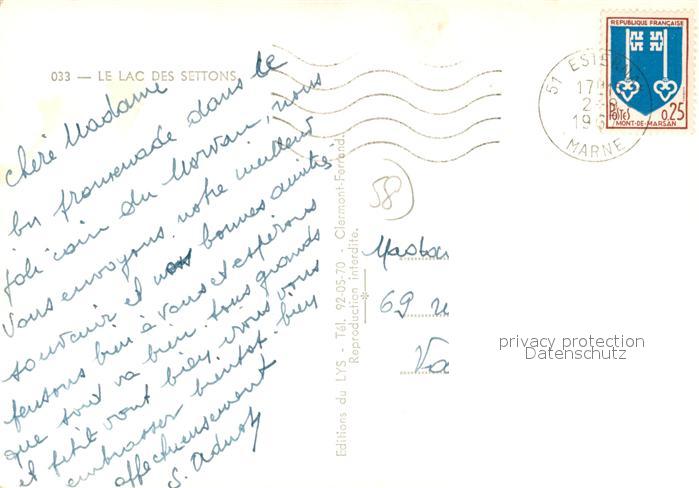 033 — LE LAC DES SETTONS
Chère Madame
En promenade dans le
joli coin du Morvan, nous
vous envoyons notre meilleur
souvenir et nos bonnes amitiés
pensons bien à vous et espérons
que tout va bien. tous grands
et petits vont bien, vous vous
embrasser bientôt. bien
affectueusement
S.
Editions du LYS - Tél. 92-05-70 - Clermont-Ferrand.
Reproduction interdite.
58
REPUBLIQUE FRANÇAISE
POSTES
0,25
MONT-DE-MARSAN
51
MARNE
69
privacy protection
Datenschutz